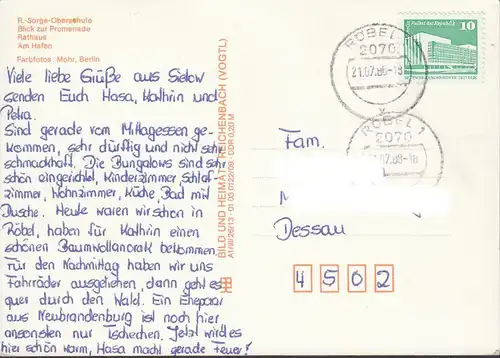 R.-Sorge-Oberschule
Blick zur Promenade
Rathaus
Am Hafen
Farbfotos: Mohr, Berlin
Viele liebe Grüße aus Sietow
senden Euch Hasa, Kathrin und
Petra.
Sind gerade vom Mittagessen ge-
kommen, sehr dürftig und nicht sehr
schmackhaft. Die Bungalows sind sehr
schön eingerichtet, Kinderzimmer, Schlaf-
zimmer, Wohnzimmer, Küche, Bad mit
Dusche. Heute waren wir schon in
Röbel, haben für Kathrin einen
schönen Baumwollanorak bekommen.
Für den Nachmittag haben wir uns
Fahrräder ausgeliehen, dann geht es
quer durch den Wald. Ein Ehepaar
aus Neubrandenburg ist noch hier
ansonsten nur Tschechen. Jetzt wird es
hier schön warm, Hasa macht gerade Feuer!
BILD UND HEIMAT REICHENBACH (VOGTL)
A1/III/26/13 01 03 0122/09 DDR 0,20 M
RÖBEL 1
2070
21.07.86-18
10
RÖBEL 1
2070
07.86-18
Fam.
Dessau
4502